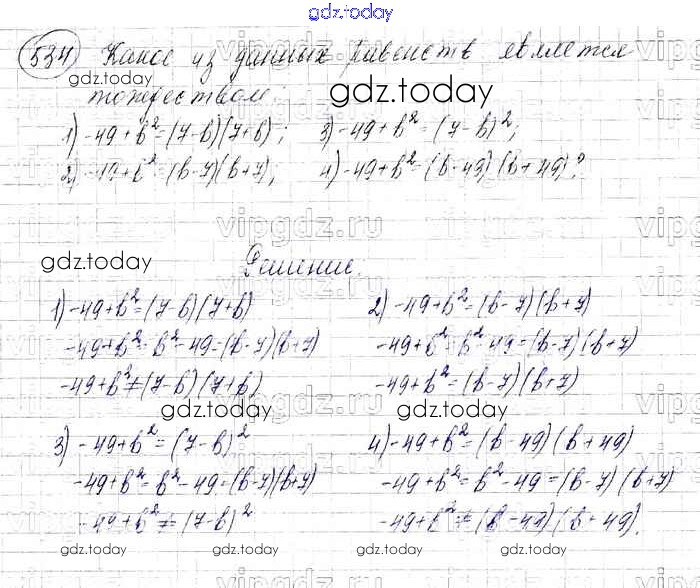 gdz.today
534 Какое из данных равенств является
тождеством:
gdz.today
gdz.today
1) -49+b²=(7-b)(7+b); 3) -49+b²=(7-b)²;
2) -49+b²=(b-7)(b+7); 4) -49+b²=(b-49)(b+49)?
vipgdz.ru
gdz.today
Решение.
1) -49+b²=(7-b)(7+b)
-49+b²=b²-49=(b-7)(b+7)
-49+b²≠(7-b)(7+b)
2) -49+b²=(b-7)(b+7)
-49+b²=b²-49=(b-7)(b+7)
-49+b²=(b-7)(b+7)
gdz.today
gdz.today
3) -49+b²=(7-b)²
-49+b²=b²-49=(b-7)(b+7)
-49+b²≠(7-b)²
4) -49+b²=(b-49)(b+49)
-49+b²=b²-49=(b-7)(b+7)
-49+b²≠(b-49)(b+49).
gdz.today
gdz.today
gdz.today